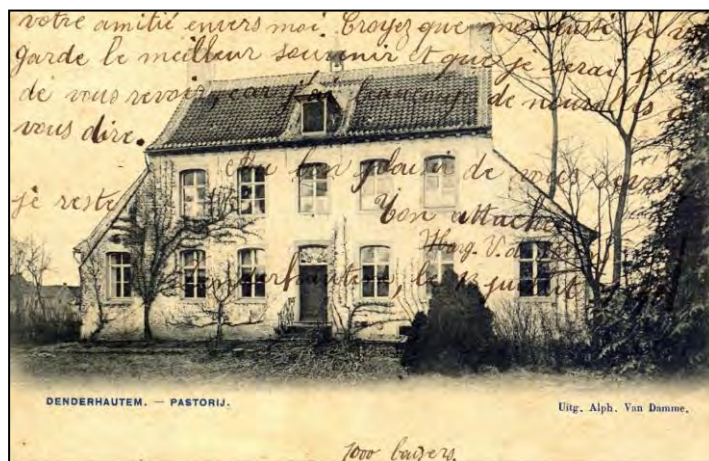 votre amitié envers moi. Croyez que moi aussi je
garde le meilleur souvenir et que je serai
de vous revoir, car j'ai beaucoup de nouvelles
vous dire.
bon plaisir de vous
je reste
Ton attaché
Marg. V.
1000 baisers.
DENDERHAUTEM. — PASTORIJ.
Uitg. Alph. Van Damme.